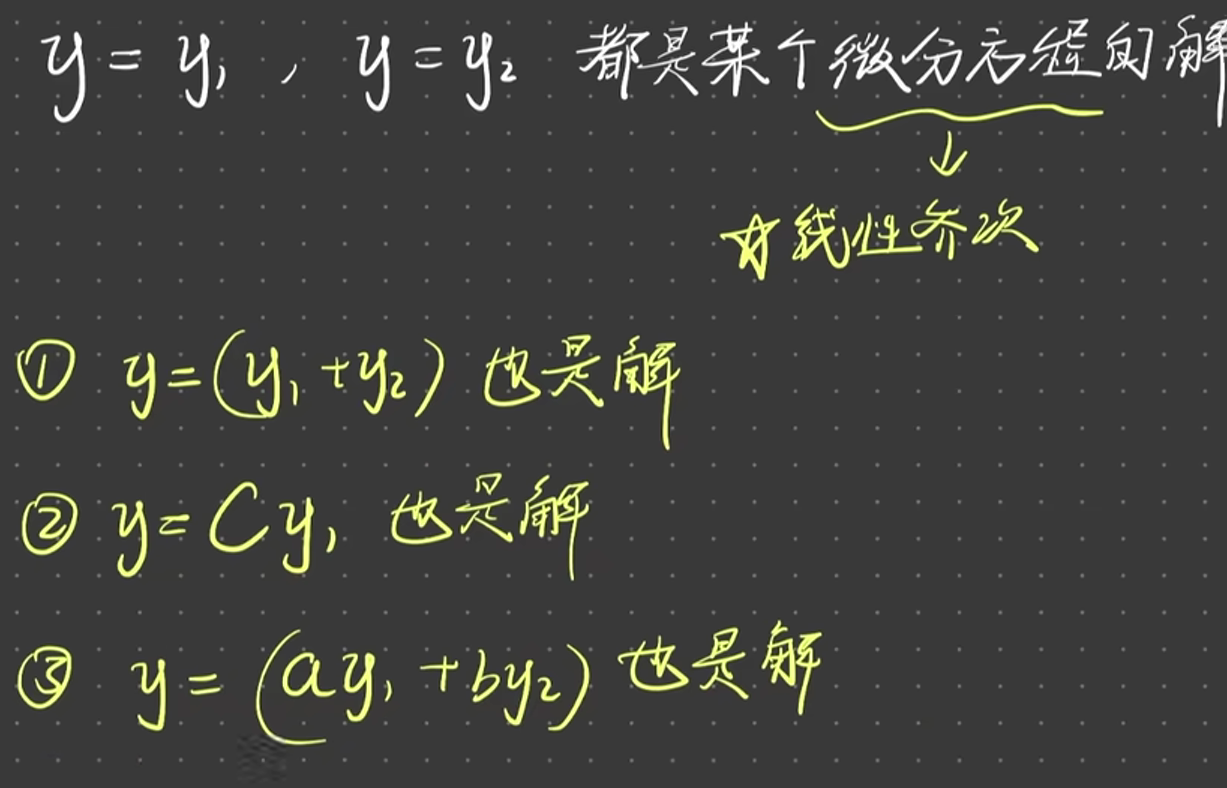 y = y₁ , y = y₂ 都是某个微分方程的解
↓
☆线性齐次
① y=(y₁+y₂) 也是解
② y=Cy₁ 也是解
③ y=(ay₁+by₂) 也是解